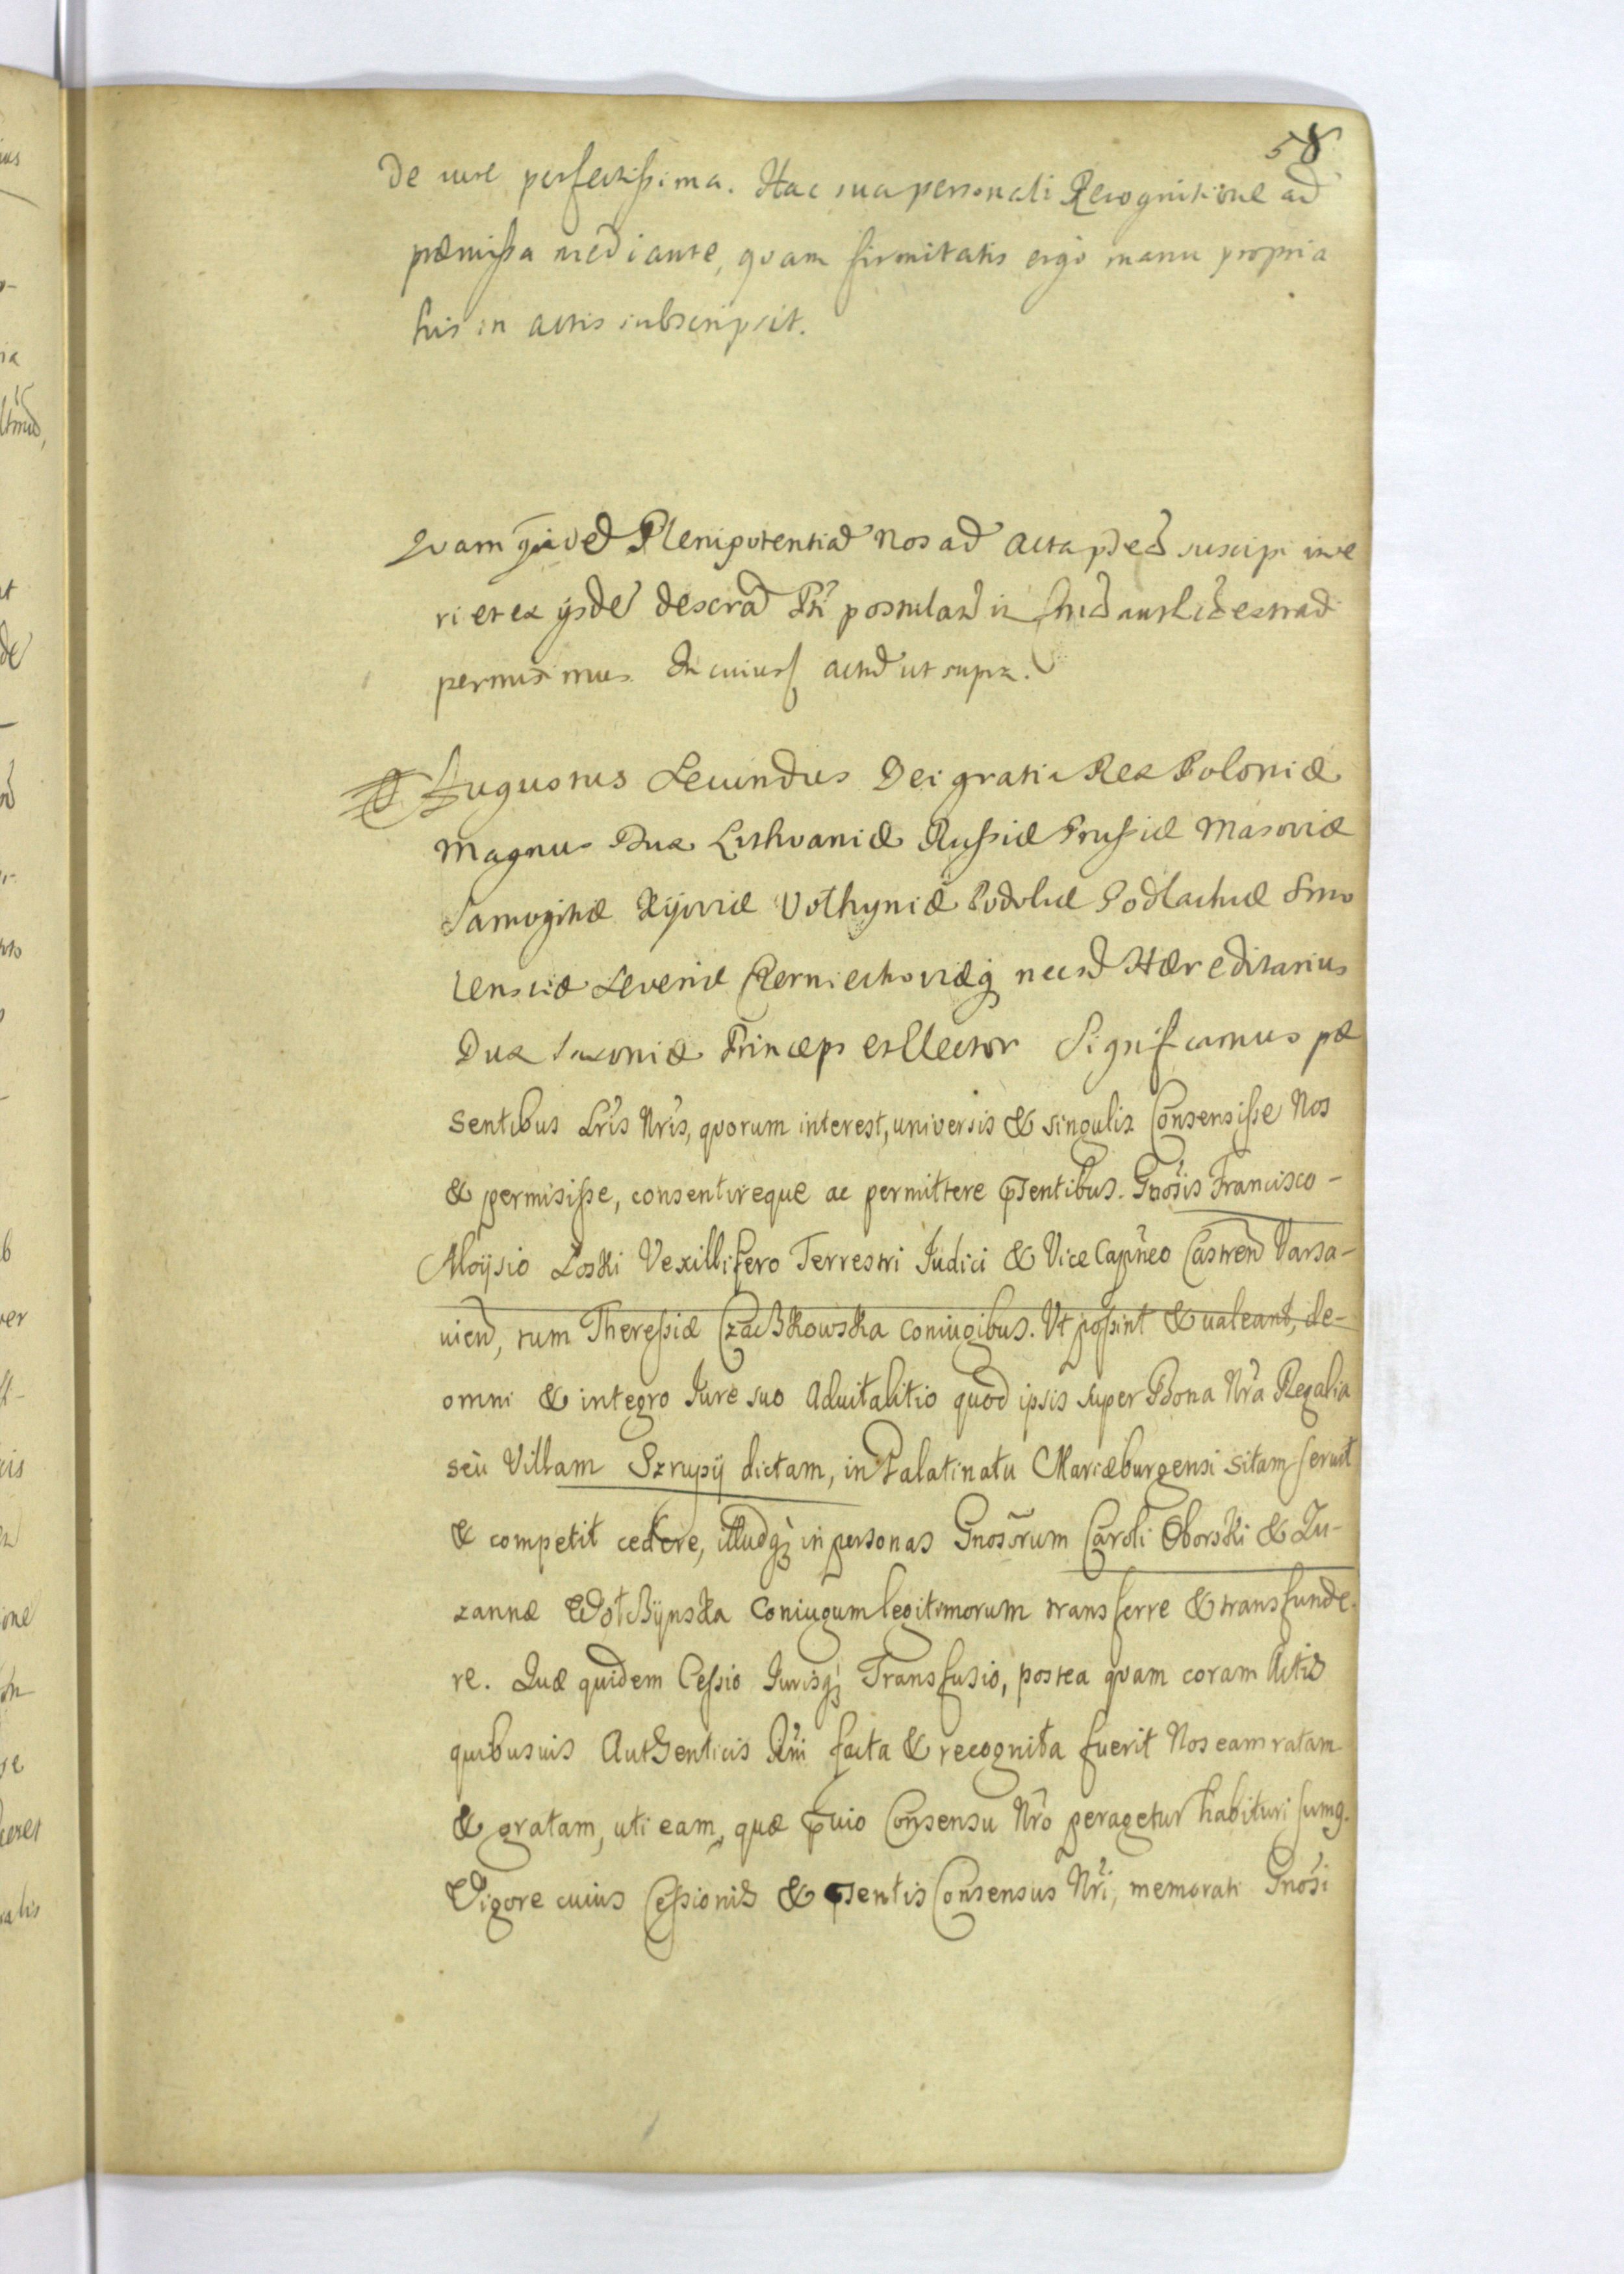 58
de iure perfectissima. Hac sua personali Recognitione ad
præmissa mediante, qvam firmitatis ergo manu propria
his in actis subscripsit.
Qvam Plenipotentiad nos ad acta pded suscipi inse
ri et ex ijsde descrad postulad in
permisimus. In cuius actud ut supra.
Augustus Secundus Dei gratia Rex Poloniæ
Magnus Dux Lithvaniæ Russiæ Prussiæ Masoviæ
Samogitiæ Kijoviæ Volhyniæ Podoliæ Podlachiæ Smo
lensciæ Severiæ Czerniechoviæq necnd Hæreditarius
Dux Saxoniæ Princeps et Elector Significamus præ
sentibus Lris Nris, qvorum interest, universis & singulis Consensisse Nos
& permisisse, consentireque ac permittere pntibus. Gnosis Francisco -
Aloysio Loski Vexillifero Terrestri Judici & Vice Capneo Castren Varsa-
vien, tum Theressiæ Czaszkowska coniugibus. Ut possint & valeant, de-
omni & integro Jure suo advitalitio quod ipsis super Bona Nra Regalia
seu Villam Szrupij dictam, in Palatinatu Mariæburgensi sitam servit
& competit cedere, illudq; in personas Gnosorum Caroli Oborski & Zu-
zannæ Wolbÿnska Coniugum legitimorum transferre & transfunde-
re. Quæ quidem Cessio Jurisq; Transfusio, postea qvam coram Actis
quibusuis Authenticis Rni facta & recognita fuerit Nos eam ratam
& gratam, uti eam, quæ pvio Consensu Nro peragetur habituri sumq.
Vigore cuius Cessionis & psentis Consensus Nri, memorati Gnosi